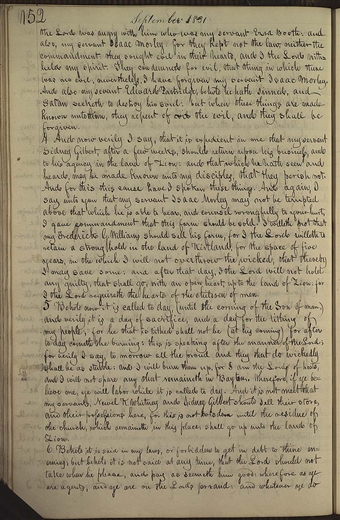 152
September 1831
the Lord was angry with him who was my servant Ezra Booth: and
also, my servant Isaac Morley. for they kept not the law, neither the
commandment they sought evil in their hearts, and I the Lord with
held my spirit. They condemned for evil, that thing in which there
was no evil, nevertheless, I have forgiven my servant Isaac Morley.
And also my servant Edward Partridge, behold he hath sinned, and
Satan seeketh to destroy his soul: but when these things are made
known unto them, they repent of the evil, and they shall be
forgiven.
4 And now verily I say, that it is expedient in me that my servant
Sidney Gilbert, after a few weeks, should return upon his business, and
to his agency in the land of Zion: and that which he hath seen and
heard, may be made known unto my disciples, that they perish not.
And for this cause have I spoken these things. And again, I
say unto you that my servant Isaac Morley may not be tempted
above that which he is able to bear, and counsel wrongfully to your hurt,
I gave commandment that this farm should be sold. I willeth not that
my Frederick G. Williams should sell his farm, for I the Lord willeth to
retain a strong hold in the land of Kirtland, for the space of five
years, in the which I will not overthrow the wicked, that thereby
I may save some: and after that day, I the Lord will not hold
any guilty, that shall go, with an open heart, up to the land of Zion: for
I the Lord requireth the hearts of the children of men.
5 Behold now it is called to day, (until the coming of the Son of man,)
and verily it is a day of sacrifice, and a day for the tithing of
my people; for he that is tithed shall not be (at his coming) for after
to day cometh the burning: this is speaking after the manner of the Lord;
for verily I say, to morrow all the proud and they that do wickedly
shall be as stubble: and I will burn them up, for I am the Lord of hosts,
and I will not spare any that remaineth in Babylon. therefore, if ye be-
lieve me, ye will labor while it is called to day. And it is not meet that
my servants, Newel K Whitney and Sidney Gilbert should sell their store,
and their possessions here, for this is not wisdom until the residue of
the church, which remaineth in this place, shall go up unto the land of
Zion.
6 Behold it is said in my laws, or forbidden to get in debt to thine en-
emies; but behold it is not said at any time, that the Lord should not
take when he please, and pay as seemeth him good: wherefore as ye
are agents, and ye are on the Lord's errand: and whatever ye do